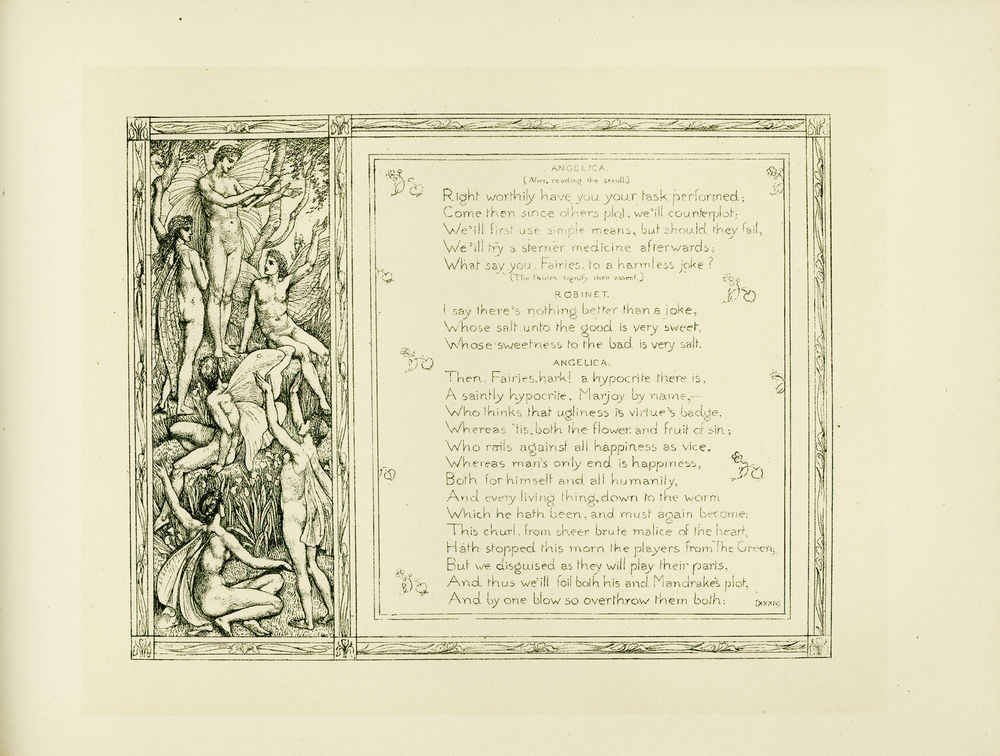 ANGELICA.
[After, reading the scroll.]
Right worthily have you your task performed;
Come then since others plot, we'ill counterplot:
We'ill first use simple means, but should they fail,
We'ill try a sterner medicine afterwards;
What say you, Fairies, to a harmless joke?
[The Fairies signify their assent.]
ROBINET.
I say there's nothing better than a joke,
Whose salt unto the good is very sweet,
Whose sweetness to the bad is very salt.
ANGELICA.
Then, Fairies, hark! a hypocrite there is,
A saintly hypocrite, Marjoy by name,—
Who thinks that ugliness is virtue's badge,
Whereas 'tis, both the flower, and fruit of sin;
Who rails against all happiness as vice,
Whereas man's only end is happiness,
Both for himself and all humanity,
And every living thing, down to the worm
Which he hath been, and must again become:
This churl, from sheer brute malice of the heart,
Hath stopped this morn the players from The Green;
But we disguised as they will play their parts,
And thus we'ill foil both his and Mandrake's plot,
And by one blow so overthrow them both:
[XXXIV]